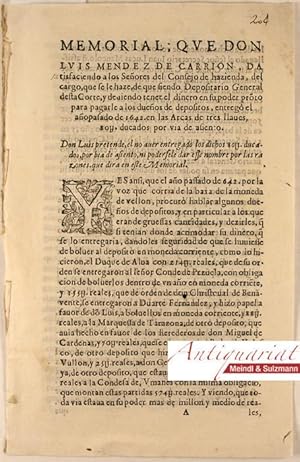 204
MEMORIAL; QVE DON
LVIS MENDEZ DE CARRION, DA
satisfaciendo a los Señores del Consejo de hazienda, del
cargo, que se le haze, de que siendo Depositario General
desta Corte, y deuiendo tener el dinero en su poder prōto
para pagarle a los dueños de depositos, entregò el
año passado de 1642. en las Arcas de tres llaues,
80y. ducados por via de assiento.
Don Luis pretende, el no auer entregado los dichos 80y. duca-
dos, por via de assiento, ni poderseledar este nombre por las ra
zones, que dirà en este Memorial.
YEs ansi, que el año passado de 642. por la
voz que corria de la baxa de la moneda
de vellon, procurò hablar algunos due-
ños de depositos, y en particular a los que
eran de gruessas cantidades, y dezirles, q̄
si tenian donde acomodar su dinero, q̄
se lo entregaria, dandoles seguridad de que se huuiesse
de boluer al deposito en moneda corriente, como lo hi-
cieron, el Duque de Alua con reales, que de su or-
den se entregaron al señor Conde de Peñuela, con obliga
cion de boluerlos dentro de vn año en moneda corriēte,
y reales, que de orden de don Christoual de Bena-
uente, se entregaron a Duarte Fernandez, y hizo papel a
fauor de dō Luis, a
reales, a la Marquesa de Tarazona, de otro deposito, que
auia hecho en fauor de los herederos de don Miguel de
Cardenas, y
co, de otro deposito que
Vullon, y reales, a don
ya, de otro deposito, que
reales a la Condesa de, Vmanes con la misma obligacio,
que montan estas partidas 574y. reales. Y viendo, que to-
da via estaua en su poder mas de millon y medio de rea-
A les,
Antiquariat
Meindl & Sulzmann